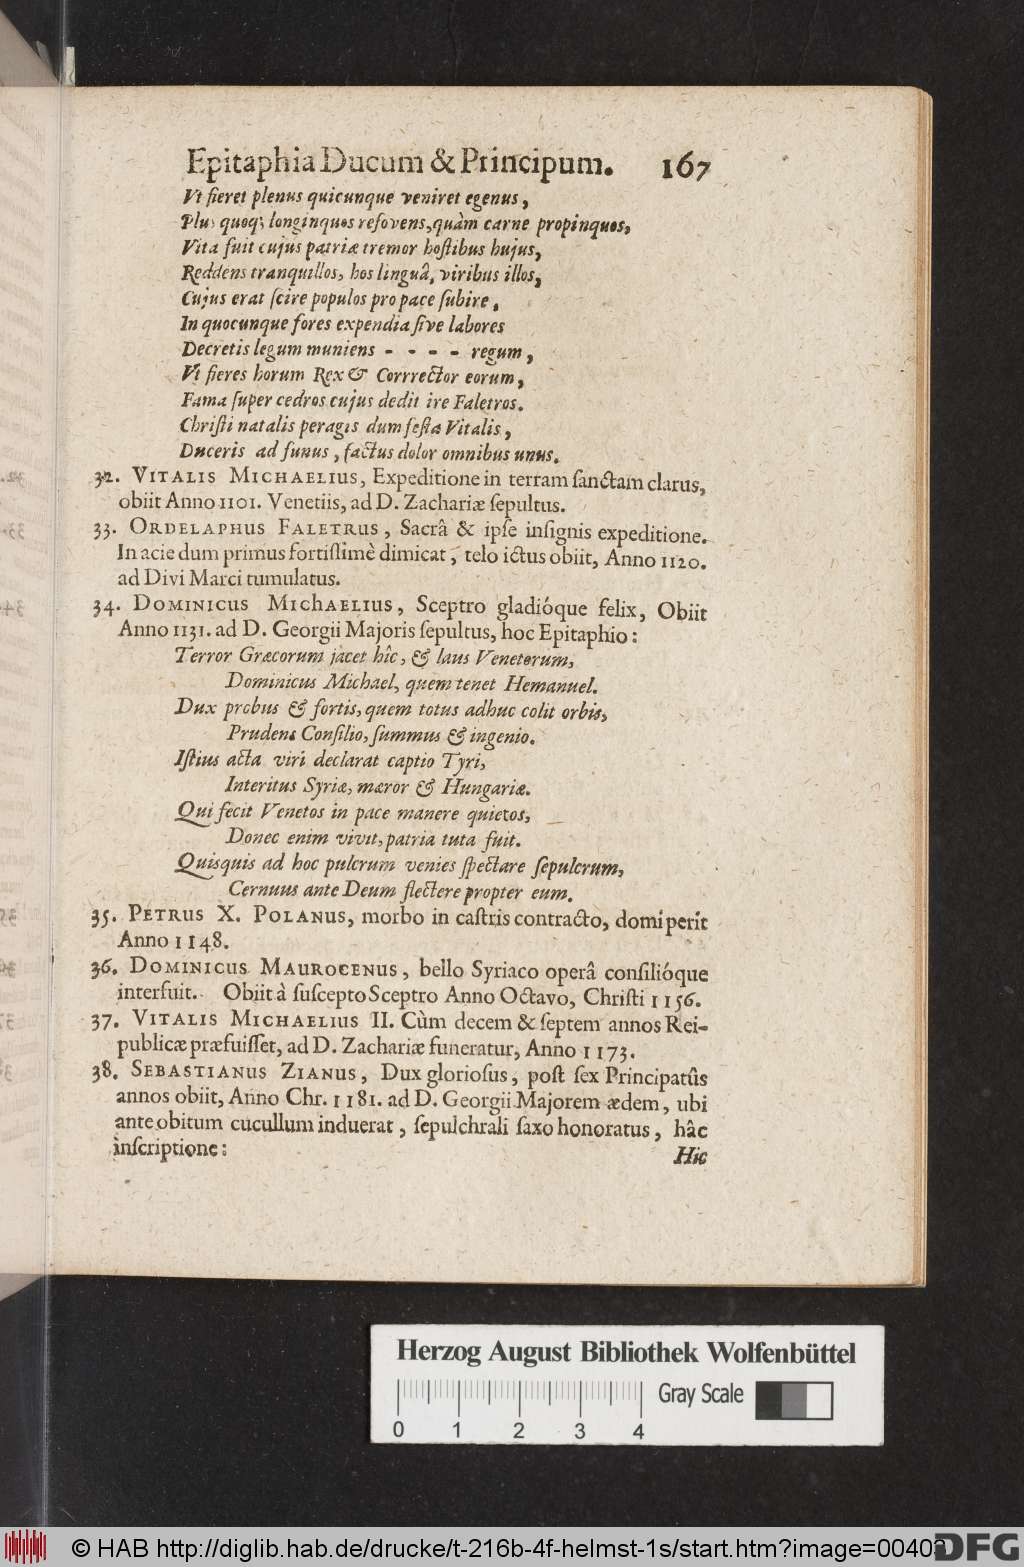 Epitaphia Ducum & Principum. 167
Vt fieret plenus quicunque veniret egenus,
Plus quoq; longinquos refovens, quàm carne propinquos,
Vita fuit cujus patriæ tremor hostibus hujus,
Reddens tranquillos, hos linguâ, viribus illos,
Cujus erat scire populos pro pace subire,
In quocunque fores expendia sive labores
Decretis legum muniens - - - - regum,
Vt fieres horum Rex & Corrrector eorum,
Fama super cedros cujus dedit ire Faletros.
Christi natalis peragis dum festa Vitalis,
Duceris ad funus, factus dolor omnibus unus.
32. VITALIS MICHAELIUS, Expeditione in terram sanctam clarus,
obiit Anno 1101. Venetiis, ad D. Zachariæ sepultus.
33. ORDELAPHUS FALETRUS, Sacrâ & ipse insignis expeditione.
In acie dum primus fortissimè dimicat, telo ictus obiit, Anno 1120.
ad Divi Marci tumulatus.
34. DOMINICUS MIChAELIUS, Sceptro gladióque felix, Obiit
Anno 1131. ad D. Georgii Majoris sepultus, hoc Epitaphio:
Terror Græcorum jacet hîc, & laus Venetorum,
Dominicus Michael, quem tenet Hemanuel.
Dux probus & fortis, quem totus adhuc colit orbis,
Prudens Consilio, summus & ingenio.
Istius acta viri declarat captio Tyri,
Interitus Syriæ, mæror & Hungariæ.
Qui fecit Venetos in pace manere quietos,
Donec enim vivit, patria tuta fuit.
Quisquis ad hoc pulcrum venies spectare sepulcrum,
Cernuus ante Deum flectere propter eum.
35. PETRUS X. POLANUS, morbo in castris contracto, domi periit
Anno 1148.
36. DOMINICUS MAUROCENUS, bello Syriaco operâ consilióque
interfuit. Obiit à suscepto Sceptro Anno Octavo, Christi 1156.
37. VITALIS MICHAELIUS II. Cùm decem & septem annos Rei-
publicæ præfuisset, ad D. Zachariæ funeratur, Anno 1173.
38. SEBASTIANUS ZIANUS, Dux gloriosus, post sex Principatûs
annos obiit, Anno Chr. 1181. ad D. Georgii Majorem ædem, ubi
ante obitum cucullum induerat, sepulchrali saxo honoratus, hâc
inscriptione:
Hic
Herzog August Bibliothek Wolfenbüttel
Gray Scale
0 1 2 3 4
© HAB http://diglib.hab.de/drucke/t-216b-4f-helmst-1s/start.htm?image=00403
DFG